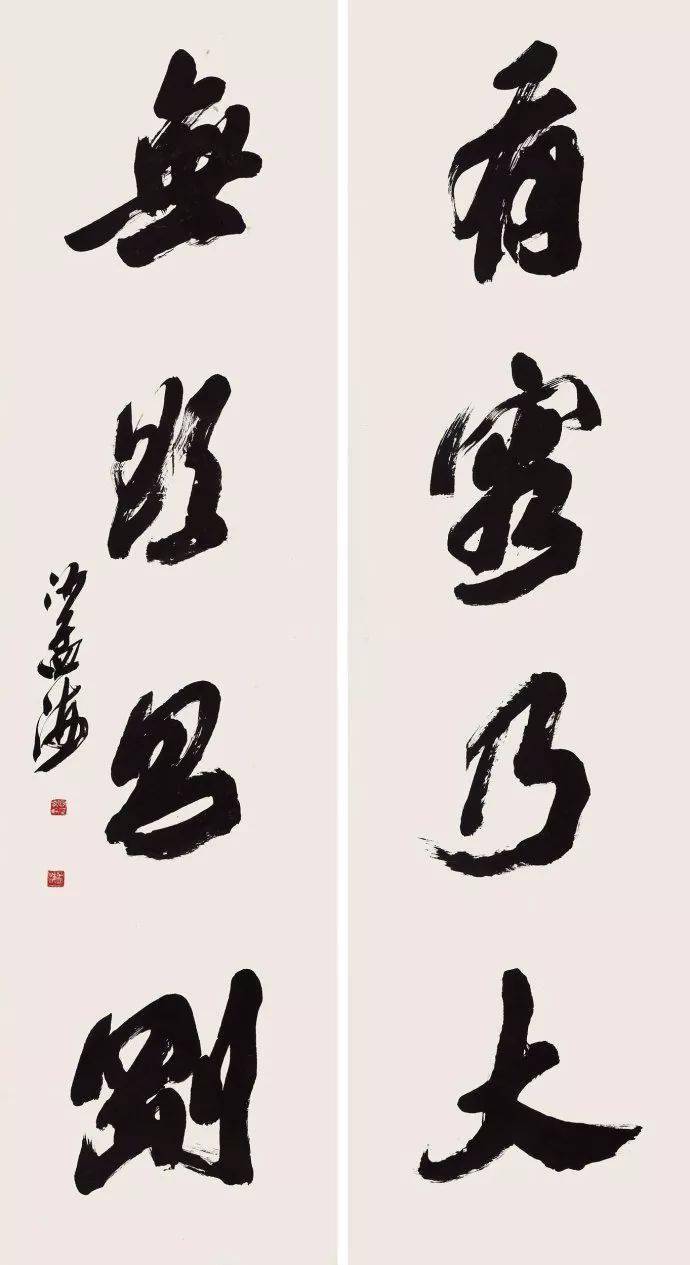 有容乃大
無欲剛
沙孟海